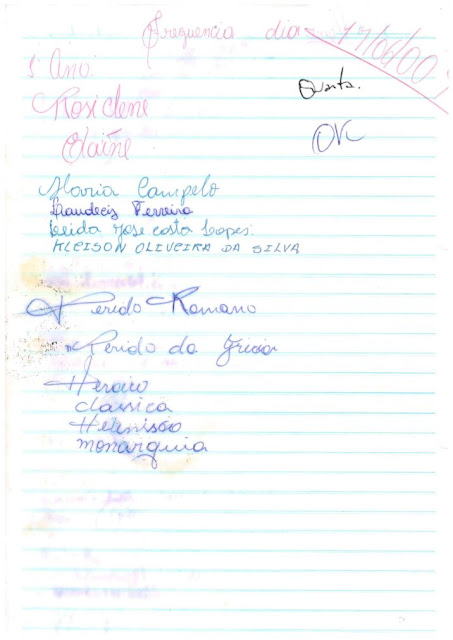 Frequencia dia 17/06/00
Quarta.
5º Ano.
Rosidene
OK
Elaine
Maria Campelo
Claudecis Ferreira
Leida Jose costa Lopes.
KLEISON OLIVEIRA DA SILVA
Perido Romano
Perido da Grecia
Heraico
classica
Helenissão
monarquia